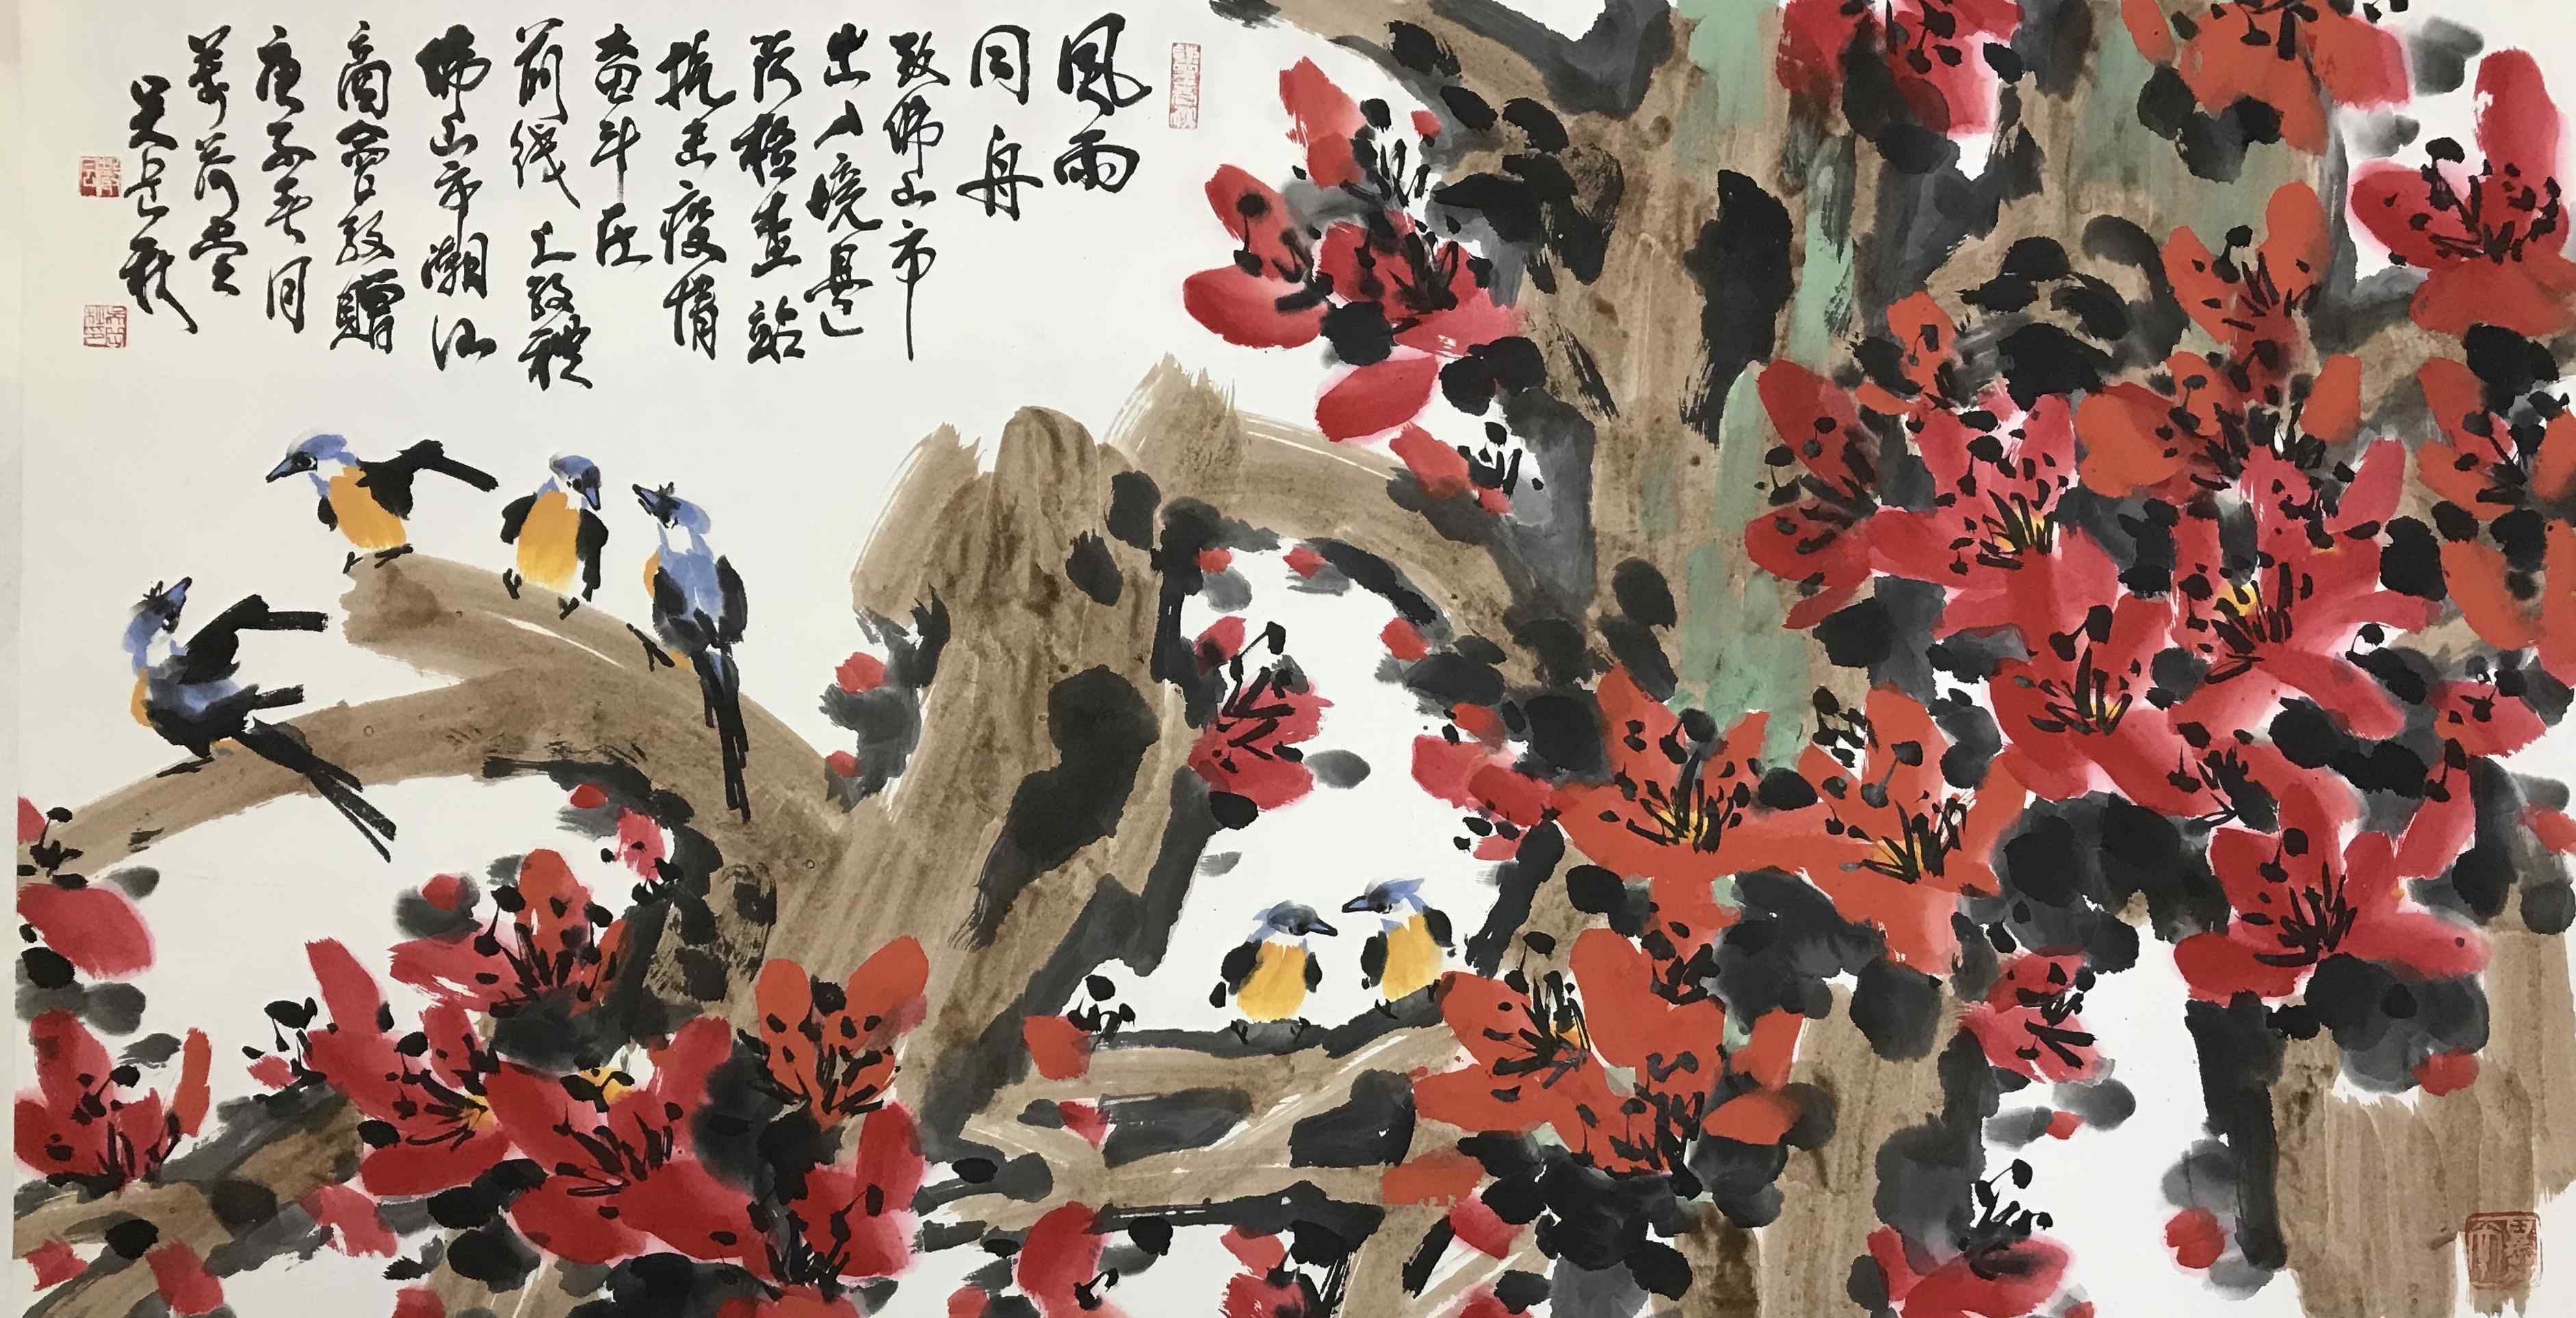 风雨
同舟
致佛山市
出入境邊
防檢查站
抗击疫情
奋斗在
前线上致禮
佛山市潮汕
商會敬贈
庚子春月
荷堂
吴